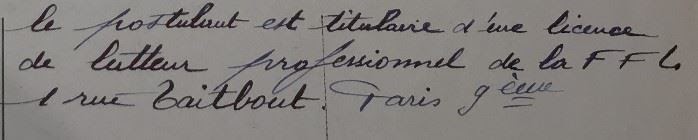 le postulant est titulaire d'une licence
de lutteur professionnel de la F F L
1 rue Taitbout. Paris 9ème